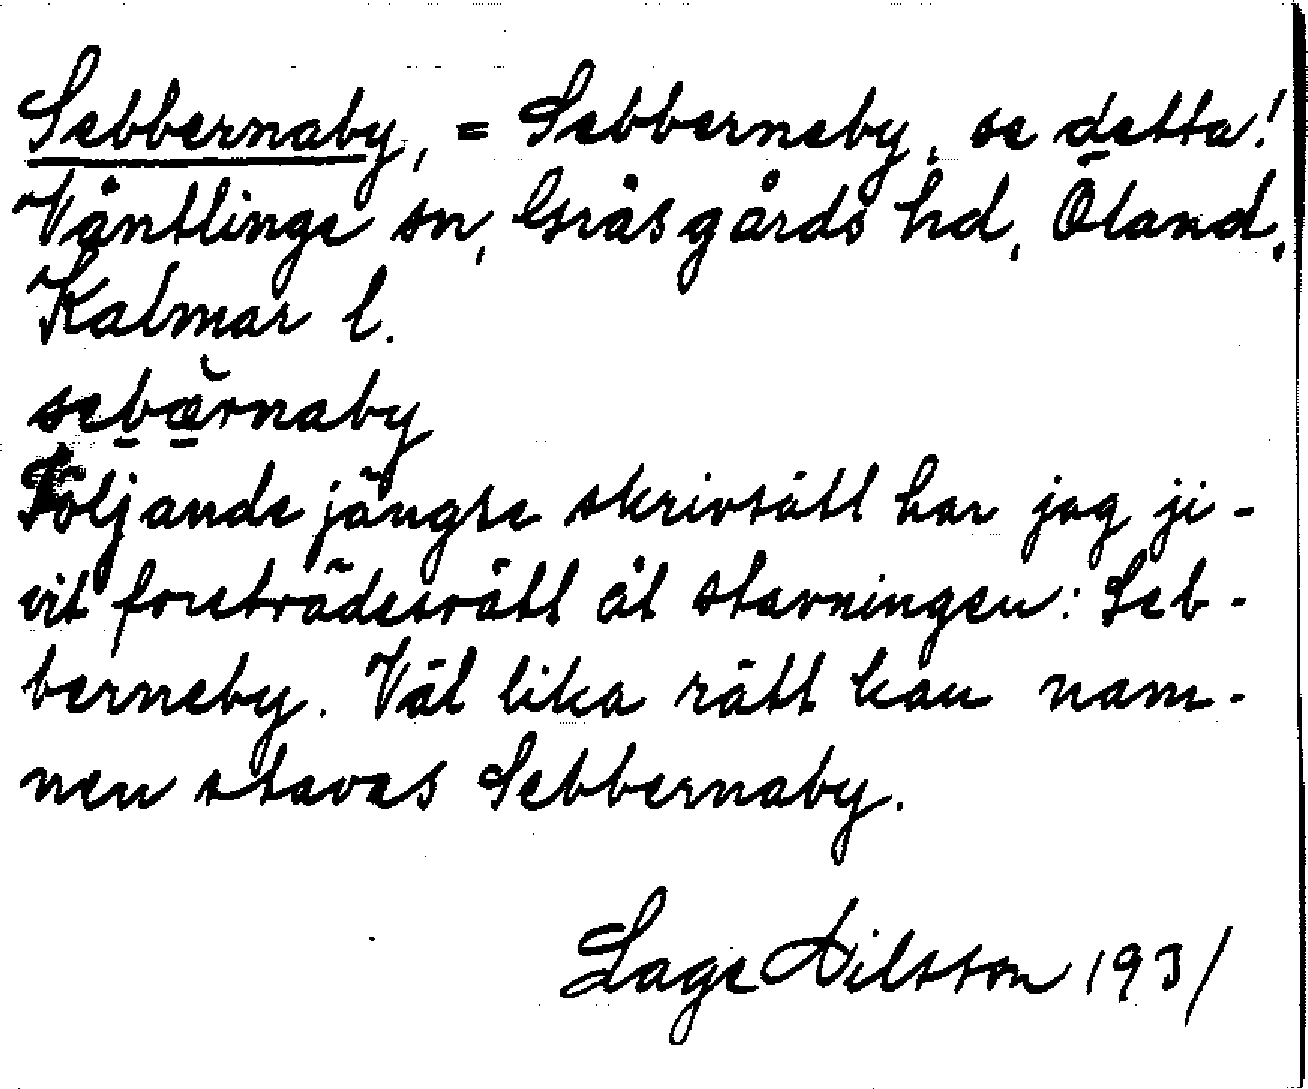 Sebbernaby, = Sebberneby, se detta!
Väntlinge sn, Gräsgårds hd, Öland,
Kalmar l.
sebærnaby
Följande jängse skrivsätt har jag ji-
vit företrädesrätt åt stavningen: Seb-
berneby. Väl lika rätt kan nam-
nen stavas Sebbernaby.
Lage Nilsson 1931